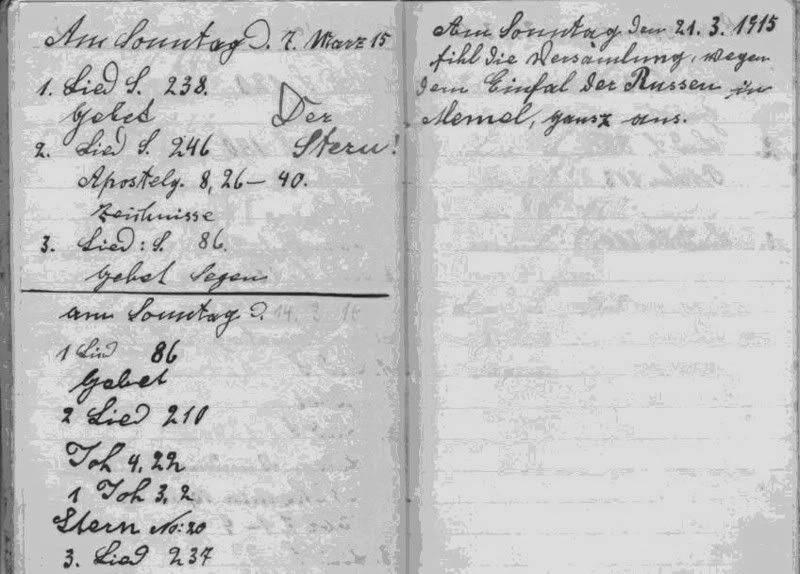 Am Sonntag d. 7. März 15
1. Lied S. 238.
Gebet
Der
2. Lied S. 246
Stern!
Apostelg. 8, 26 – 40.
Zeichnisse
3. Lied: S. 86.
Gebet Segen
am Sonntag d. 14. 3. 15
1 Lied 86
Gebet
2 Lied 210
Joh 4, 22
1 Joh 3, 2
Stern No: 20
3. Lied 237
Am Sonntag den 21. 3. 1915
fihl die Versamlung, wegen
dem Einfal der Russen in
Memel, gansz aus.